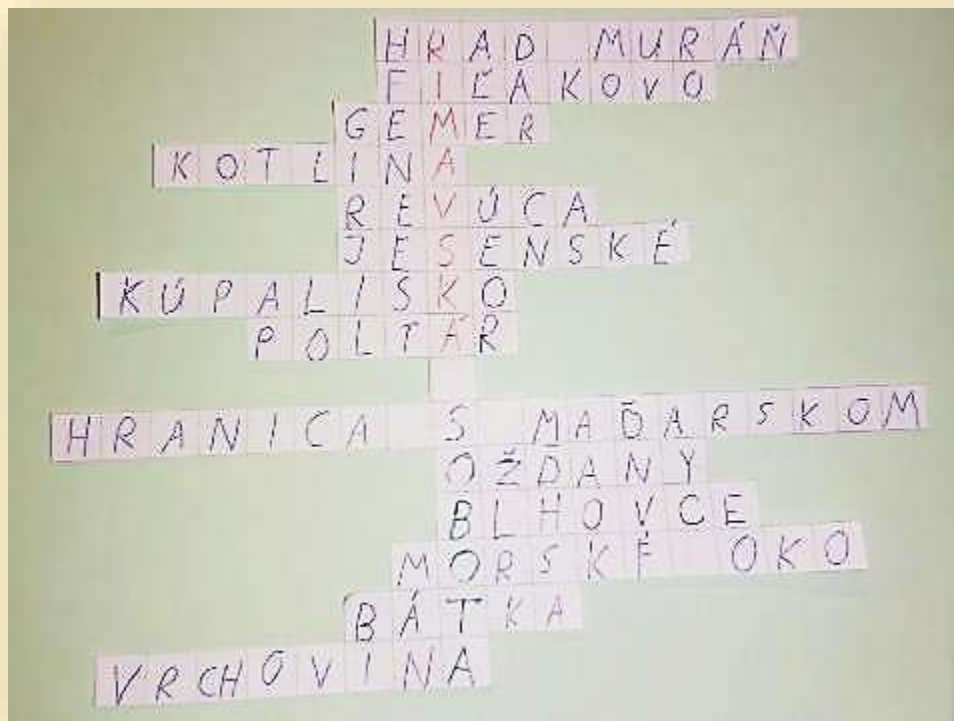 HRAD MURÁŇ
FIĽAKOVO
GEMER
KOTLINA
REVÚCA
JESENSKÉ
KÚPALISKO
POLTÁR
HRANICA S MAĎARSKOM
OŽĎANY
BLHOVCE
MORSKÉ OKO
BÁTKA
VRCHOVINA